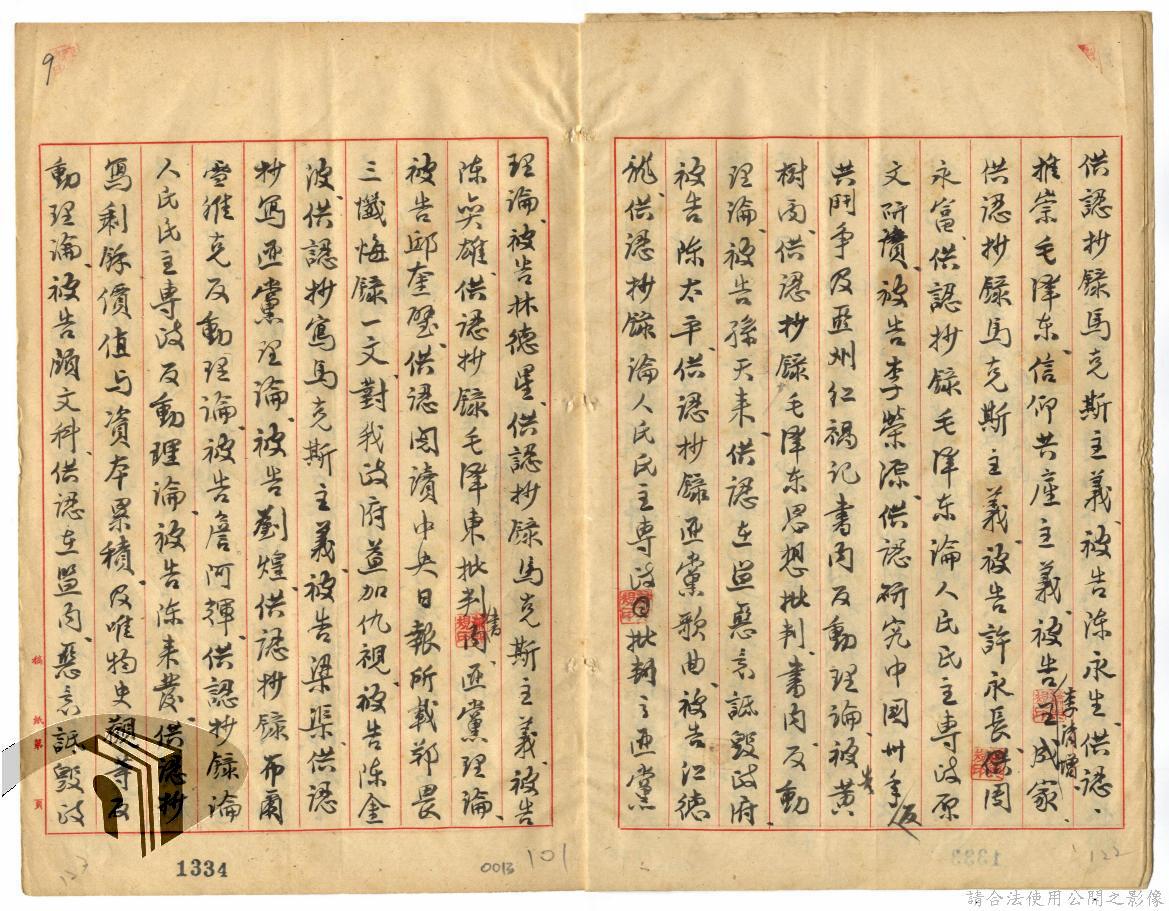 供認抄錄馬克斯主義、被告陳永生、供認、
推崇毛澤东、信仰共產主義、被告王成家、李清增
供認抄錄馬克斯主義、被告許永長、周
永富、供認抄錄毛澤东論人民民主專政原
文研讀、被告李榮源、供認研究中國卅年
共鬥爭及亞州红禍記書內反動理論、被告黄
樹函、供認抄錄毛澤东思想批判、書內反動
理論、被告孫天来、供認在監惡意詆毀政府
被告陈太平、供認抄錄匪黨歌曲、被告江德
龍、供認抄錄論人民民主專政日批朝了匪黨
理論、被告林德星、供認抄錄馬克斯主義、被告
陳英雄、供認抄錄毛澤東批判書內匪黨理論、
被告邱奎璧、供認閱讀中央日報所載郑畏
三懺悔錄一文、對我政府益加仇視、被告陈金
波、供認抄寫馬克斯主義、被告梁渠、供認
抄寫匪黨理論、被告劉煌、供認抄錄布爾
雪維克反動理論、被告詹阿輝、供認抄錄論
人民民主專政反動理論、被告陈来發、供認抄
寫剩餘價值与資本累積、及唯物史觀等反
動理論、被告顏文科、供認在監內、惡意詆毀政
稿紙第 頁
9
1334
0013
101
122
請合法使用公開之影像